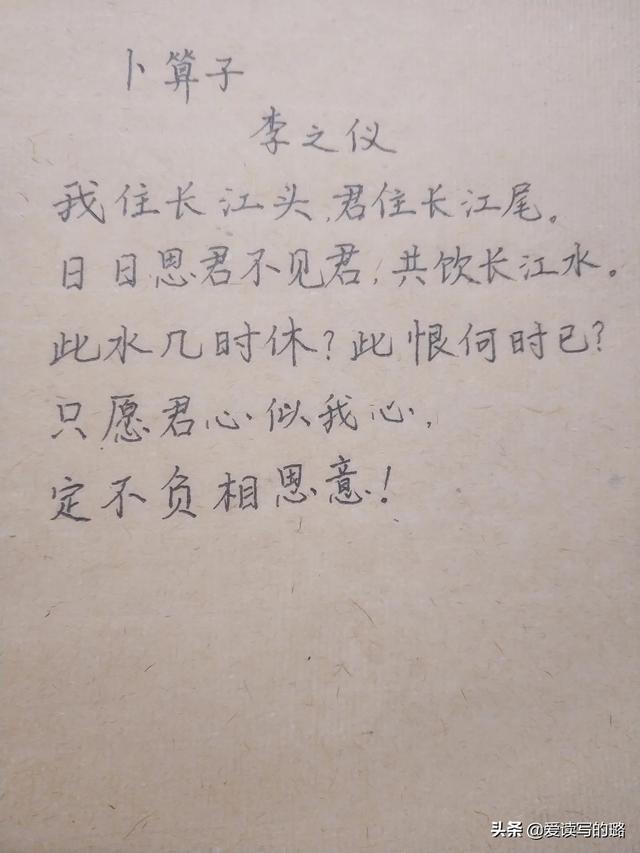 卜算子
李之仪
我住长江头,君住长江尾。
日日思君不见君,共饮长江水。
此水几时休?此恨何时已?
只愿君心似我心,
定不负相思意!
头条 @爱读写的璐